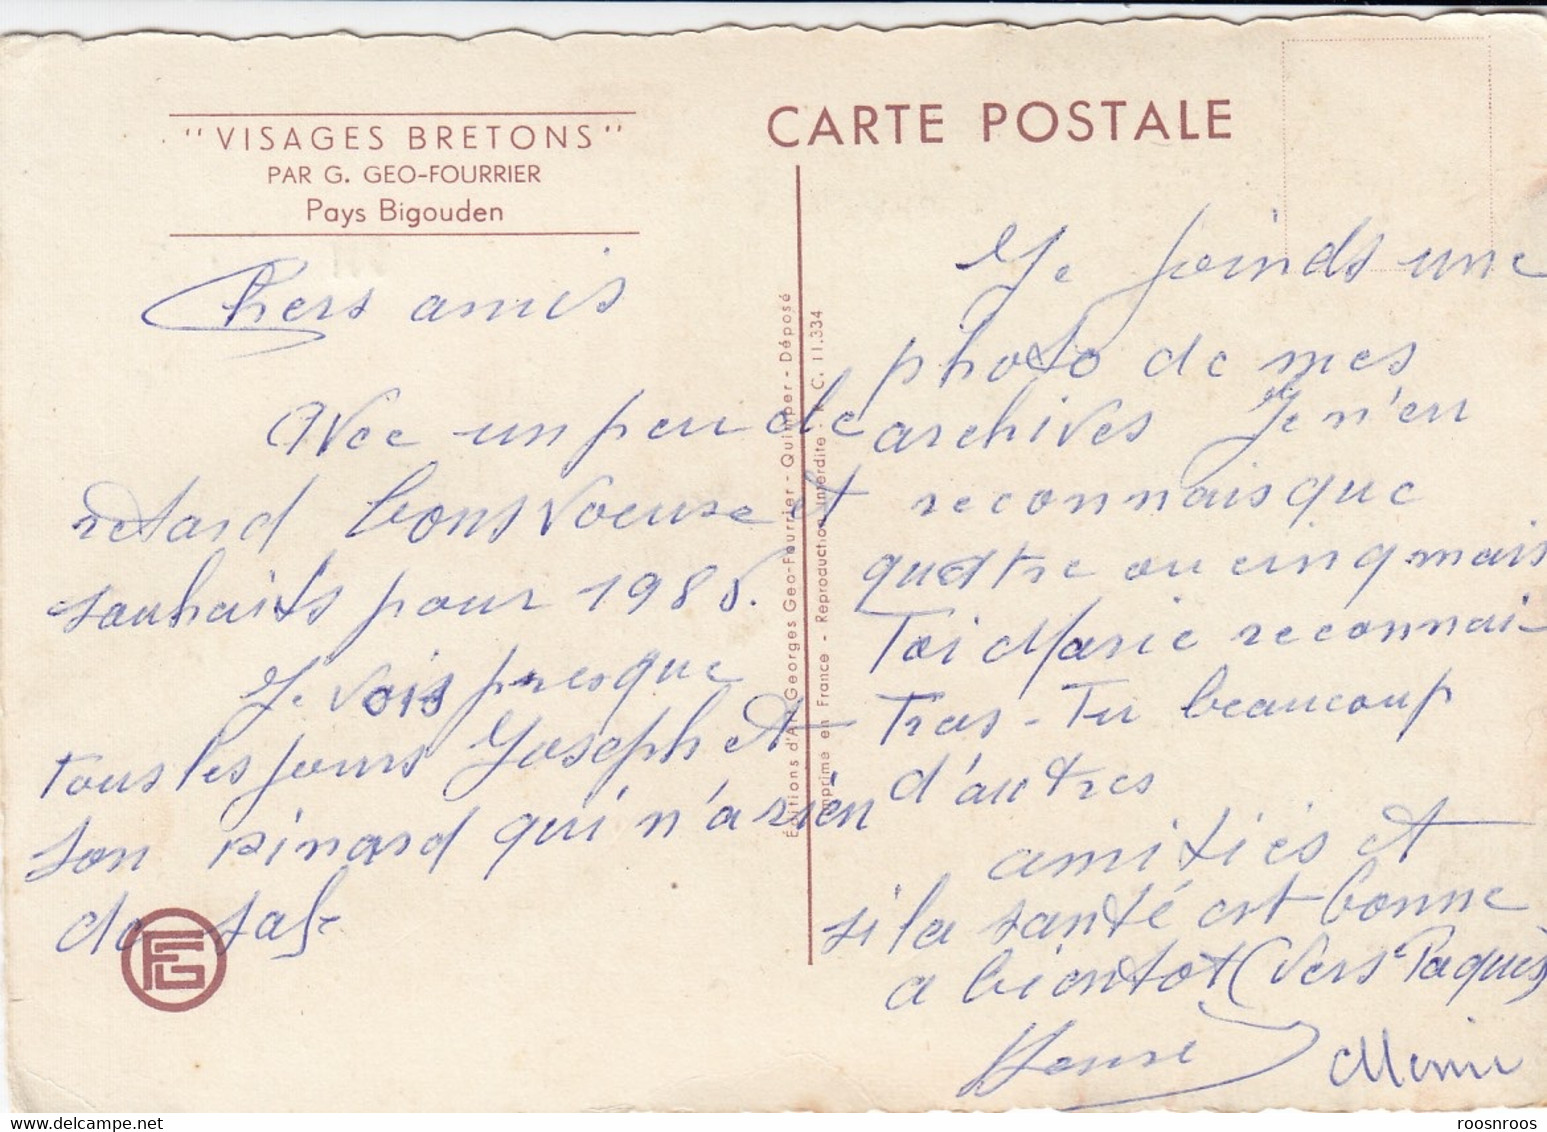 "VISAGES BRETONS"
PAR G. GEO-FOURRIER
Pays Bigouden
CARTE POSTALE
Chers amis
Avec un peu de
retard bons voeuxe et
souhaits pour 1986.
Je vois presque
tous les jours Joseph et
son pinard qui n'a rien
de sal
Je joinds une
photo de mes
archives Je n'en
reconnais que
quatre ou cinq mais
Toi Marie reconnai
tras-Tu beaucoup
d'autres
amitiés et
si la santé est bonne
a bientot (vers Paques)
Mimi
Éditions d'Art Georges Geo-Fourrier - Quimper - Déposé
Imprimé en France - Reproduction Interdite - R. C. 11.334
roosnroos